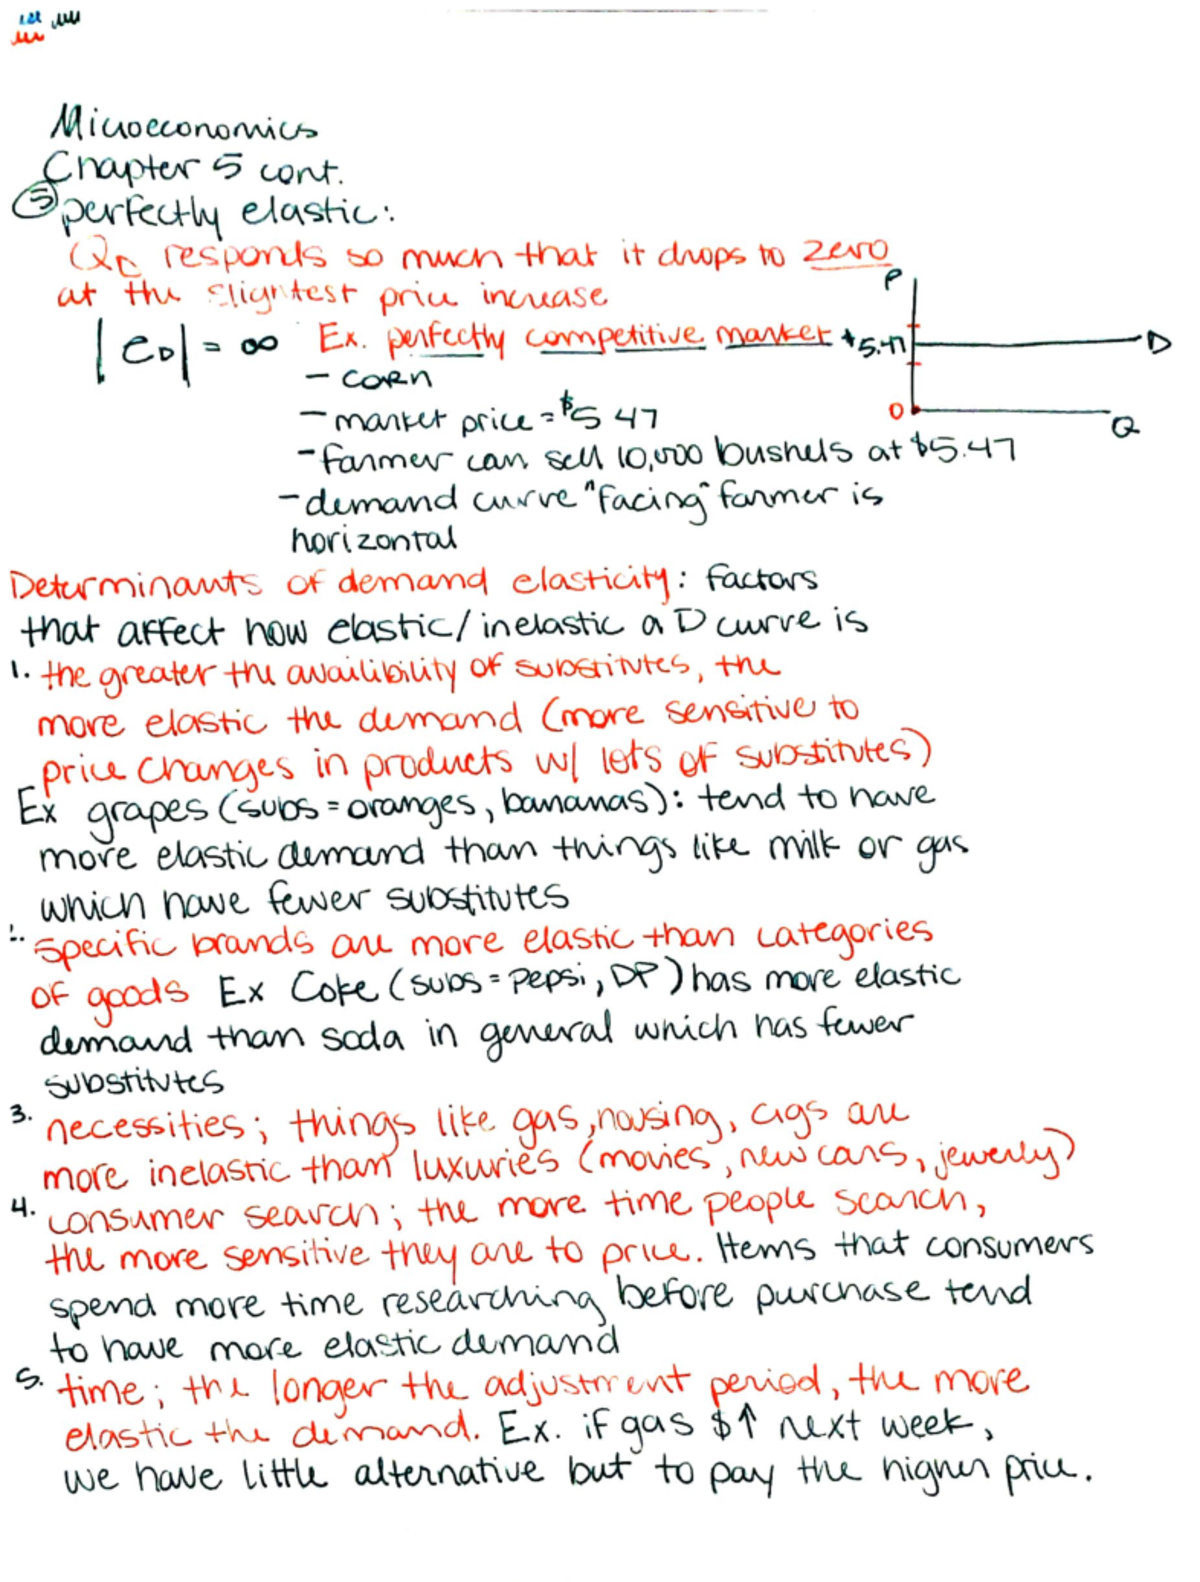 Microeconomics
Chapter 5 cont.
⑤ perfectly elastic:
QD responds so much that it drops to zero
at the slightest price increase
|eD| = ∞ Ex. perfectly competitive market
- corn
- market price = $5.47
- farmer can sell 10,000 bushels at $5.47
- demand curve "facing" farmer is
horizontal
P
$5.47
D
0
Q
Determinants of demand elasticity: factors
that affect how elastic/inelastic a D curve is
1. the greater the availibility of substitutes, the
more elastic the demand (more sensitive to
price changes in products w/ lots of substitutes)
Ex grapes (subs = oranges, bananas): tend to have
more elastic demand than things like milk or gas
which have fewer substitutes
2. specific brands are more elastic than categories
of goods Ex Coke (subs = pepsi, DP) has more elastic
demand than soda in general which has fewer
substitutes
3. necessities; things like gas, housing, cigs are
more inelastic than luxuries (movies, new cars, jewerly)
4. consumer search; the more time people search,
the more sensitive they are to price. Items that consumers
spend more time researching before purchase tend
to have more elastic demand
5. time; the longer the adjustment period, the more
elastic the demand. Ex. if gas $↑ next week,
we have little alternative but to pay the higher price.